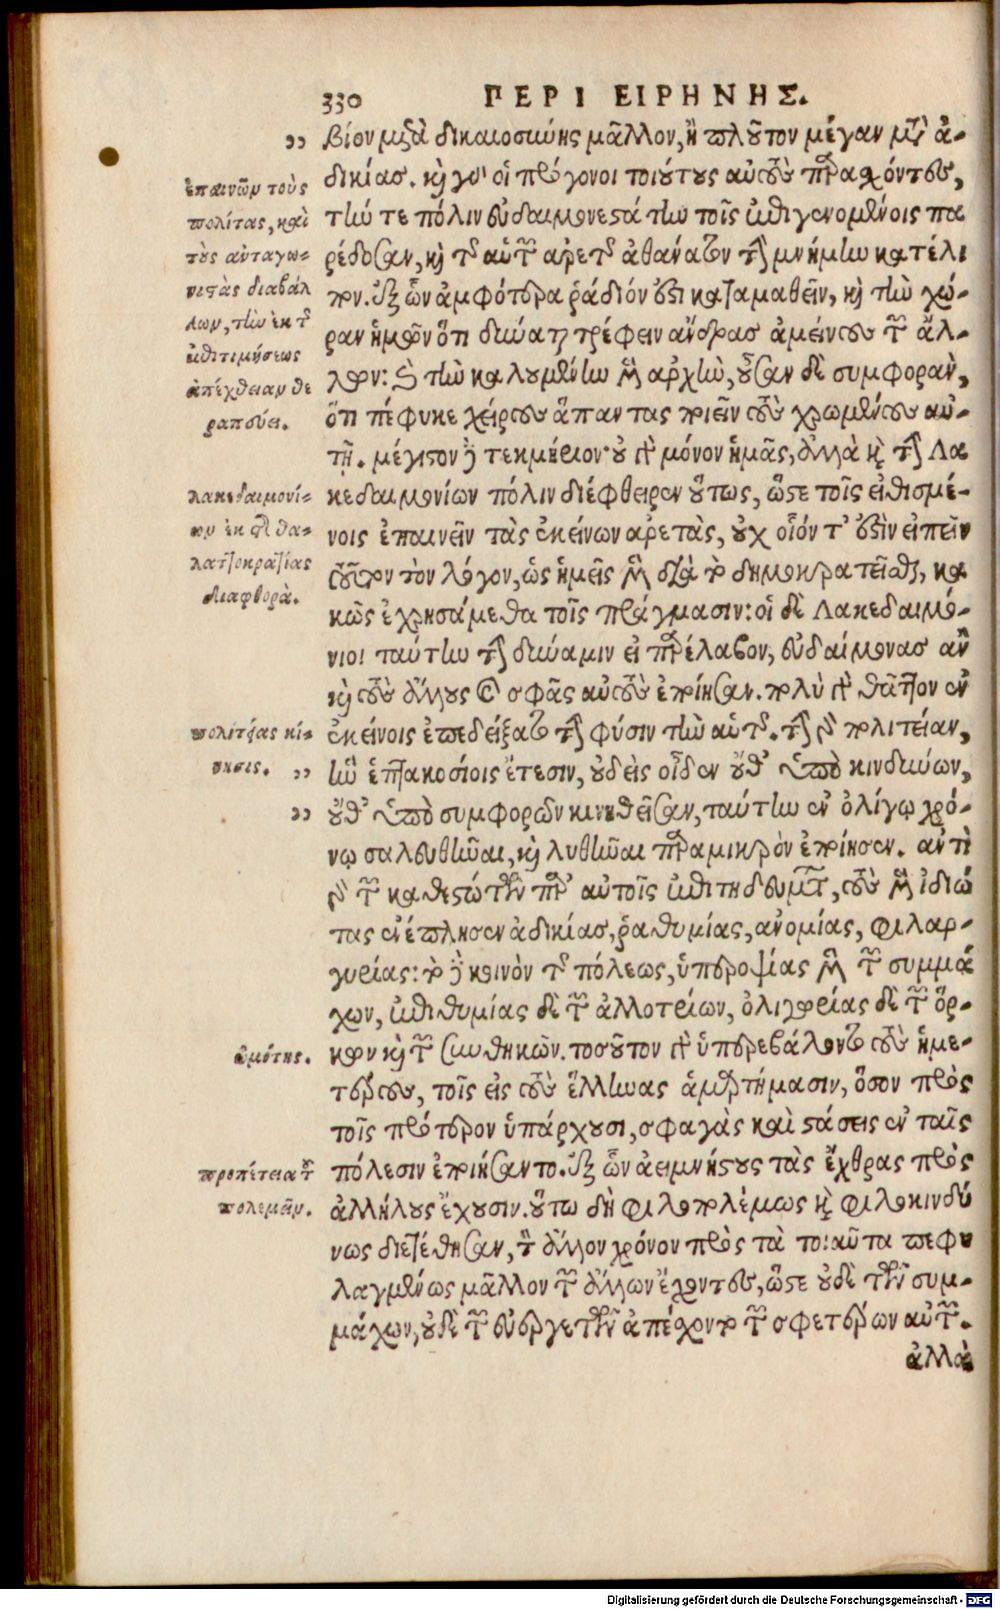 330 ΠΕΡΙ ΕΙΡΗΝΗΣ.
βίον μετὰ δικαιοσύνης μᾶλλον, ἢ πλοῦτον μέγαν μετ' ἀ-
δικίας. καὶ γὰρ οἱ πρόγονοι τοιούτους αὑτοὺς παρασχόντες,
τήν τε πόλιν εὐδαιμονεστάτην τοῖς ἐπιγενομένοις πα
ρέδοσαν, καὶ τῆς αὑτῶν ἀρετῆς ἀθανάτον τὴν μνήμην κατέλι
πον. ἐξ ὧν ἀμφότερα ῥᾴδιόν ἐστι καταμαθεῖν, καὶ τὴν χώ-
ραν ἡμῶν ὅτι δύναται τρέφειν ἄνδρας ἀμείνους τῶν ἄλ-
λων: καὶ τὴν καλουμένην μὲν ἀρχὴν, οὖσαν δὲ συμφορὰν,
ὅτι πέφυκε χείρους ἅπαντας ποιεῖν τοὺς χρωμένους αὐ-
τῇ. μέγιστον δὲ τεκμήριον· οὐ γὰρ μόνον ἡμᾶς, ἀλλὰ καὶ τὴν Λα
κεδαιμονίων πόλιν διέφθειρεν οὕτως, ὥστε τοῖς εἰθισμέ-
νοις ἐπαινεῖν τὰς ἐκείνων ἀρετὰς, οὐχ οἷόν τ' ἐστὶν εἰπεῖν
τοῦτον τὸν λόγον, ὡς ἡμεῖς μὲν διὰ τὸ δημοκρατεῖσθαι, κα
κῶς ἐχρησάμεθα τοῖς πράγμασιν: οἱ δὲ Λακεδαιμό-
νιοι ταύτην τὴν δύναμιν εἰ παρέλαβον, εὐδαίμονας ἂν
καὶ τοὺς ἄλλους καὶ σφᾶς αὐτοὺς ἐποίησαν. πολὺ γὰρ θᾶττον ἐν
ἐκείνοις ἐπεδείξατο τὴν φύσιν τὴν αὑτῆς. τὴν γὰρ πολιτείαν,
ἣν ἐν ἑπτακοσίοις ἔτεσιν, οὐδεὶς οἶδεν οὔθ' ὑπὸ κινδύνων,
οὔθ' ὑπὸ συμφορῶν κινηθεῖσαν, ταύτην ἐν ὀλίγῳ χρό-
νῳ σαλευθῆναι, καὶ λυθῆναι παρὰ μικρὸν ἐποίησεν. ἀντὶ
γὰρ τῶν καθεστώτων παρ' αὐτοῖς ἐπιτηδευμάτων, τοὺς μὲν ἰδιώ
τας ἐνέπλησεν ἀδικίας, ῥαθυμίας, ἀνομίας, φιλαρ-
γυρίας: τὸ δὲ κοινὸν τῆς πόλεως, ὑπεροψίας μὲν τῶν συμμά
χων, ἐπιθυμίας δὲ τῶν ἀλλοτρίων, ὀλιγωρίας δὲ τῶν ὅρ-
κων καὶ τῶν συνθηκῶν. τοσοῦτον γὰρ ὑπερεβάλοντο τοὺς ἡμε-
τέρους, τοῖς εἰς τοὺς ἕλληνας ἁμαρτήμασιν, ὅσον πρὸς
τοῖς πρότερον ὑπάρχουσι, σφαγὰς καὶ στάσεις ἐν ταῖς
πόλεσιν ἐποιήσαντο. ἐξ ὧν ἀειμνήστους τὰς ἔχθρας πρὸς
ἀλλήλους ἔχουσιν. οὕτω δὴ φιλοπολέμως καὶ φιλοκινδύ
νως διετέθησαν, τὸν ἄλλον χρόνον πρὸς τὰ τοιαῦτα πεφυ
λαγμένως μᾶλλον τῶν ἄλλων ἔχοντες, ὥστε οὐδὲ τῶν συμ-
μάχων, οὐδὲ τῶν εὐεργετῶν ἀπέσχοντο τῶν σφετέρων αὐτῶν.
ἀλλὰ
ἐπαινῶν τοὺς
πολίτας, καὶ
τοὺς ἀνταγω-
νιστὰς διαβάλ
λων, τὴν ἐκ τῆς
ἐπιτιμήσεως
ἀπέχθειαν θε
ραπεύει.
λακεδαιμονί-
ων ἐκ τῆς θα-
λαττοκρατίας
διαφθορὰ.
πολιτείας κί-
νησις.
ὠμότης.
προπέτεια τῶν
πολεμῶν.
Digitalisierung gefördert durch die Deutsche Forschungsgemeinschaft - DFG